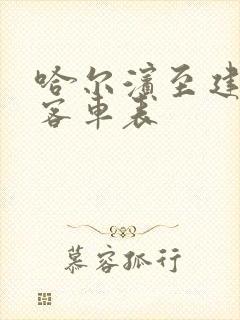 哈尔滨至建
客车表
慕容孤行